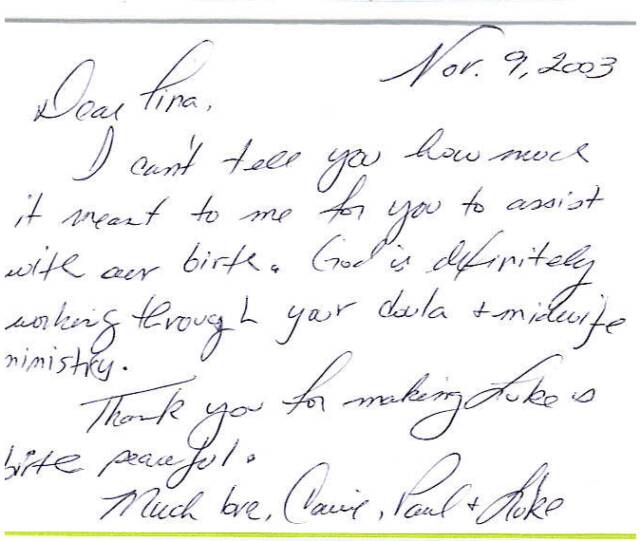 Nov. 9, 2003
Dear Tina,
I can't tell you how much
it meant to me for you to assist
with our birth. God is definitely
working through your doula + midwife
ministry.
Thank you for making Luke's
birth peaceful.
Much love, Paul + Luke